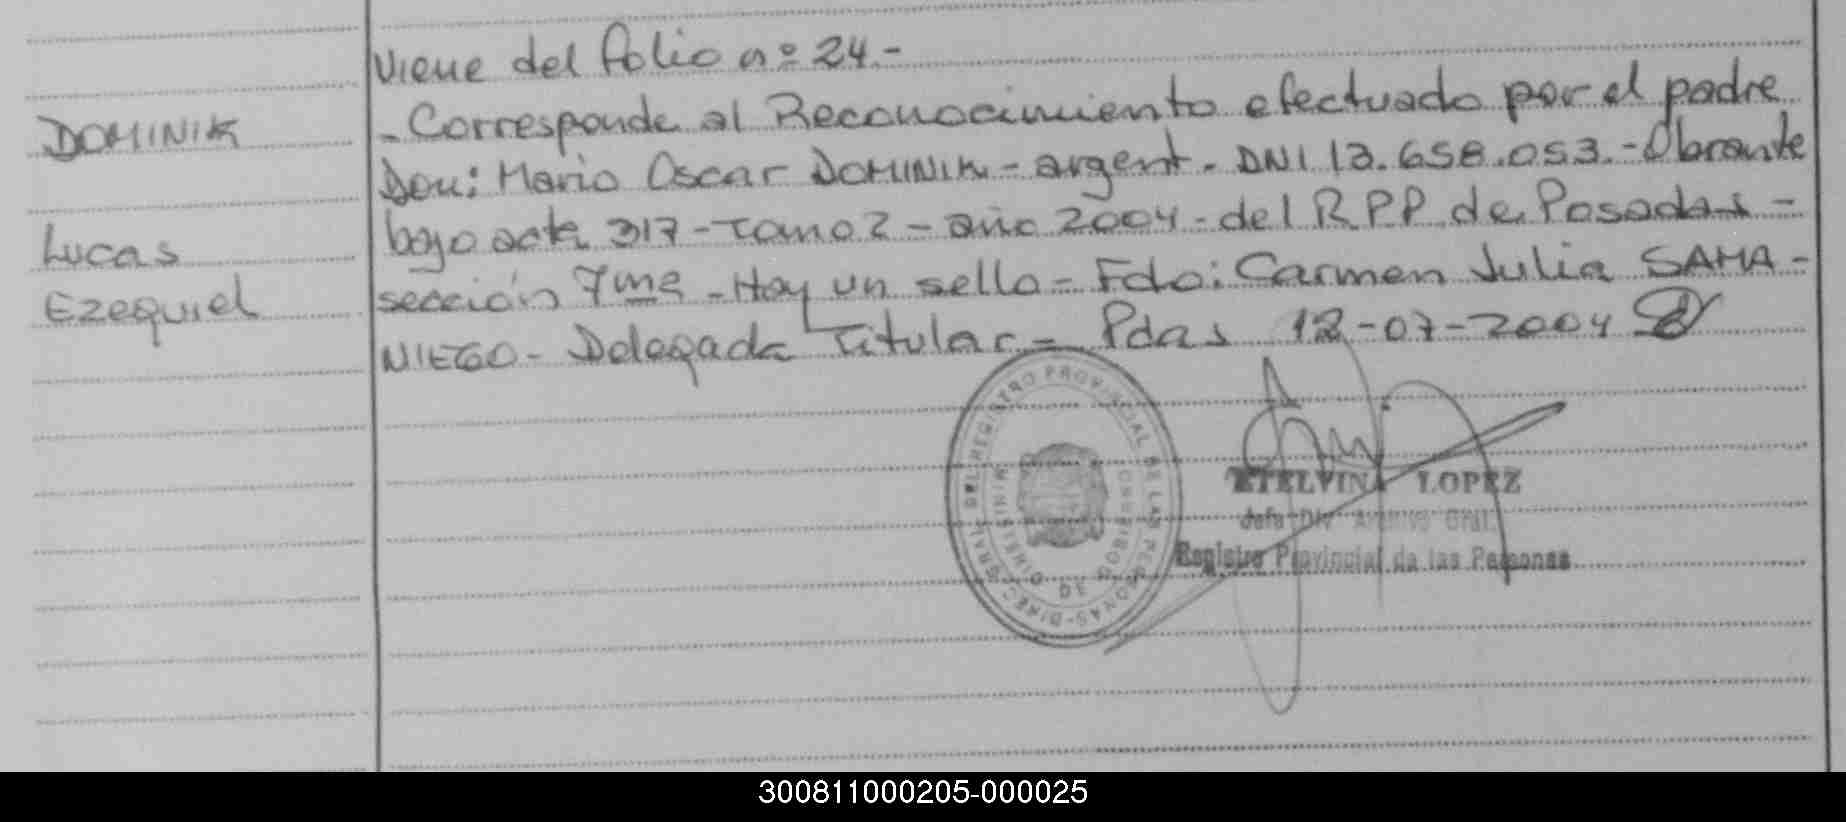 Viene del folio nº 24-
DOMINIK
- Corresponde al Reconocimiento efectuado por el padre
Don: Mario Oscar DOMINIK - argent. DNI 13.658.053.- Obrante
bajo acta 317 - Tomo 2 - año 2004 - del RPP de Posadas -
Lucas
sección 7ma - Hay un sello - Fdo: Carmen Julia SAMA-
Ezequiel
NIEGO - Delegada Titular - Pdas 12-07-2004
DIREC. GRAL. DEL REGISTRO PROVINCIAL DE LAS PERSONAS
ETELVINA LOPEZ
Jefa Div Archivo Gral.
Registro Provincial de las Personas
300811000205-000025